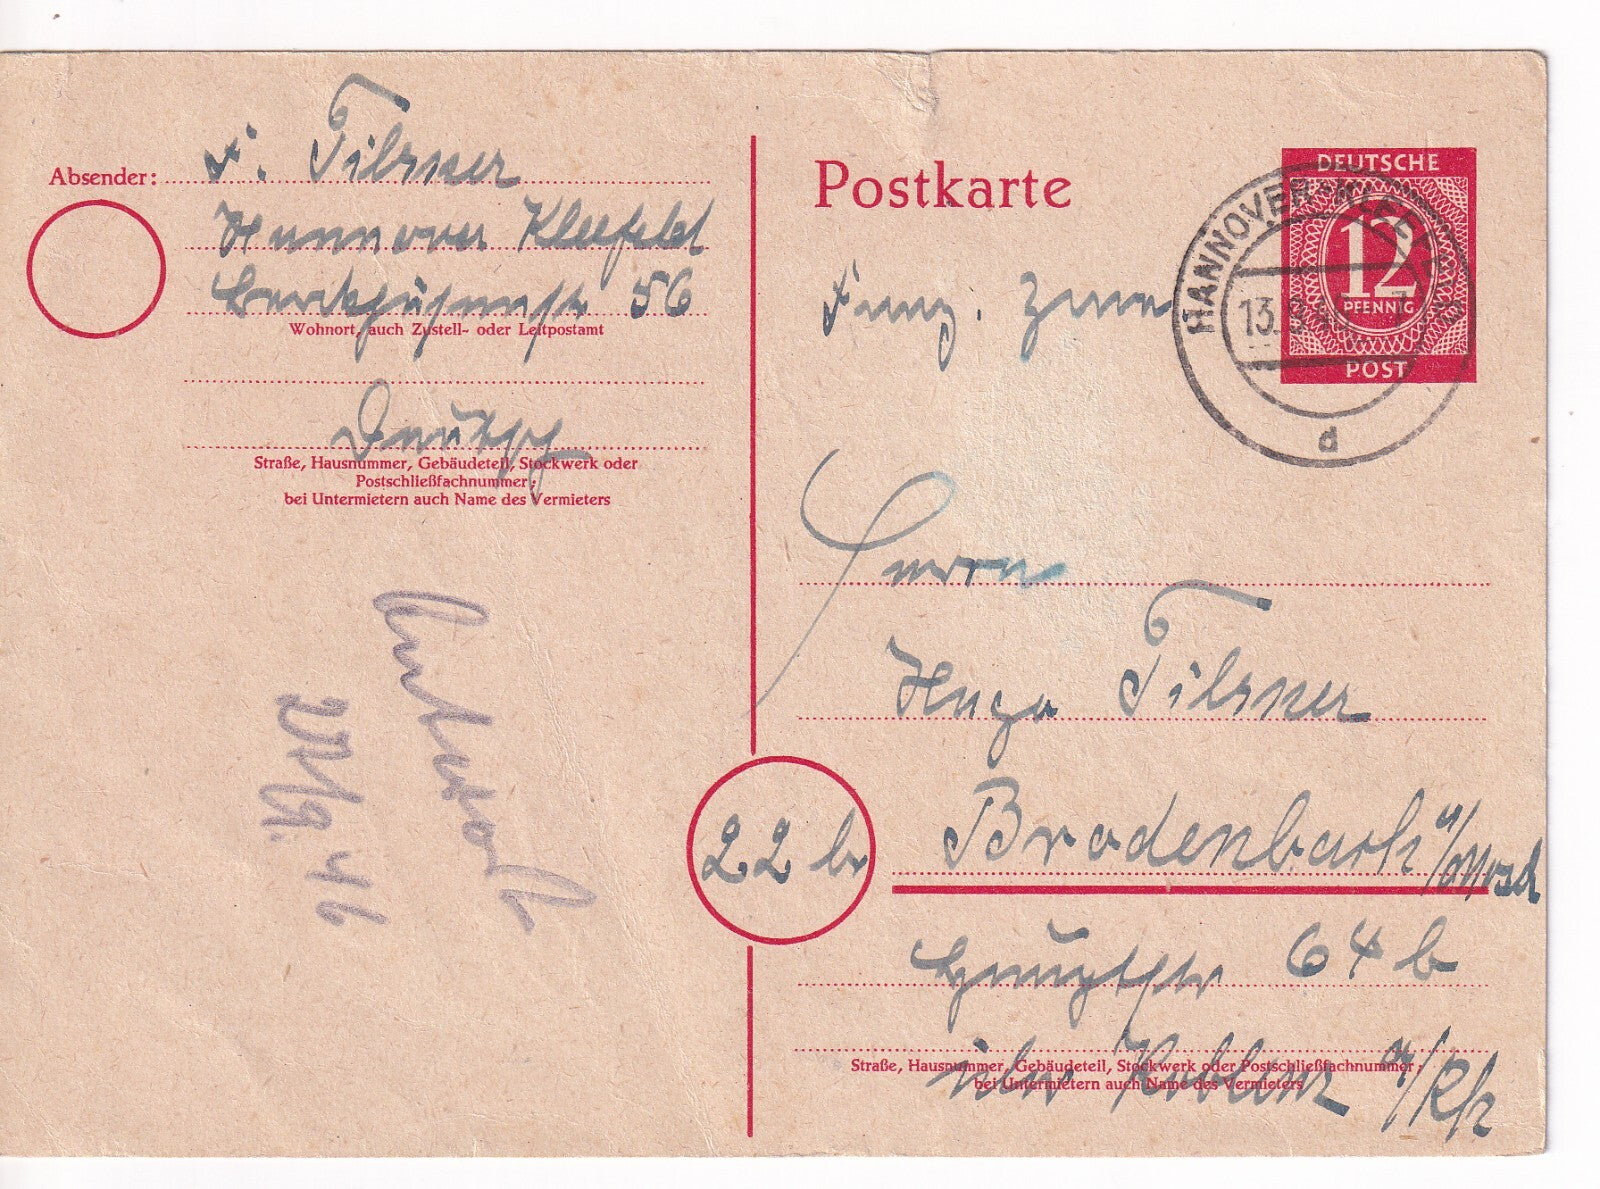 Absender: F. Tilsner
Hannover Kleefeld
56
Wohnort, auch Zustell- oder Leitpostamt
Straße, Hausnummer, Gebäudeteil, Stockwerk oder
Postschließfachnummer;
bei Untermietern auch Name des Vermieters
Postkarte
DEUTSCHE
12
PFENNIG
POST
HANNOVER-KLEEFELD
d
Franz. Zone
Herrn
Hugo Tilsner
22 b
Brodenbach a/Mosel
Hauptstr 64 b
über Koblenz a/Rh
Straße, Hausnummer, Gebäudeteil, Stockwerk oder Postschließfachnummer;
bei Untermietern auch Name des Vermieters
46